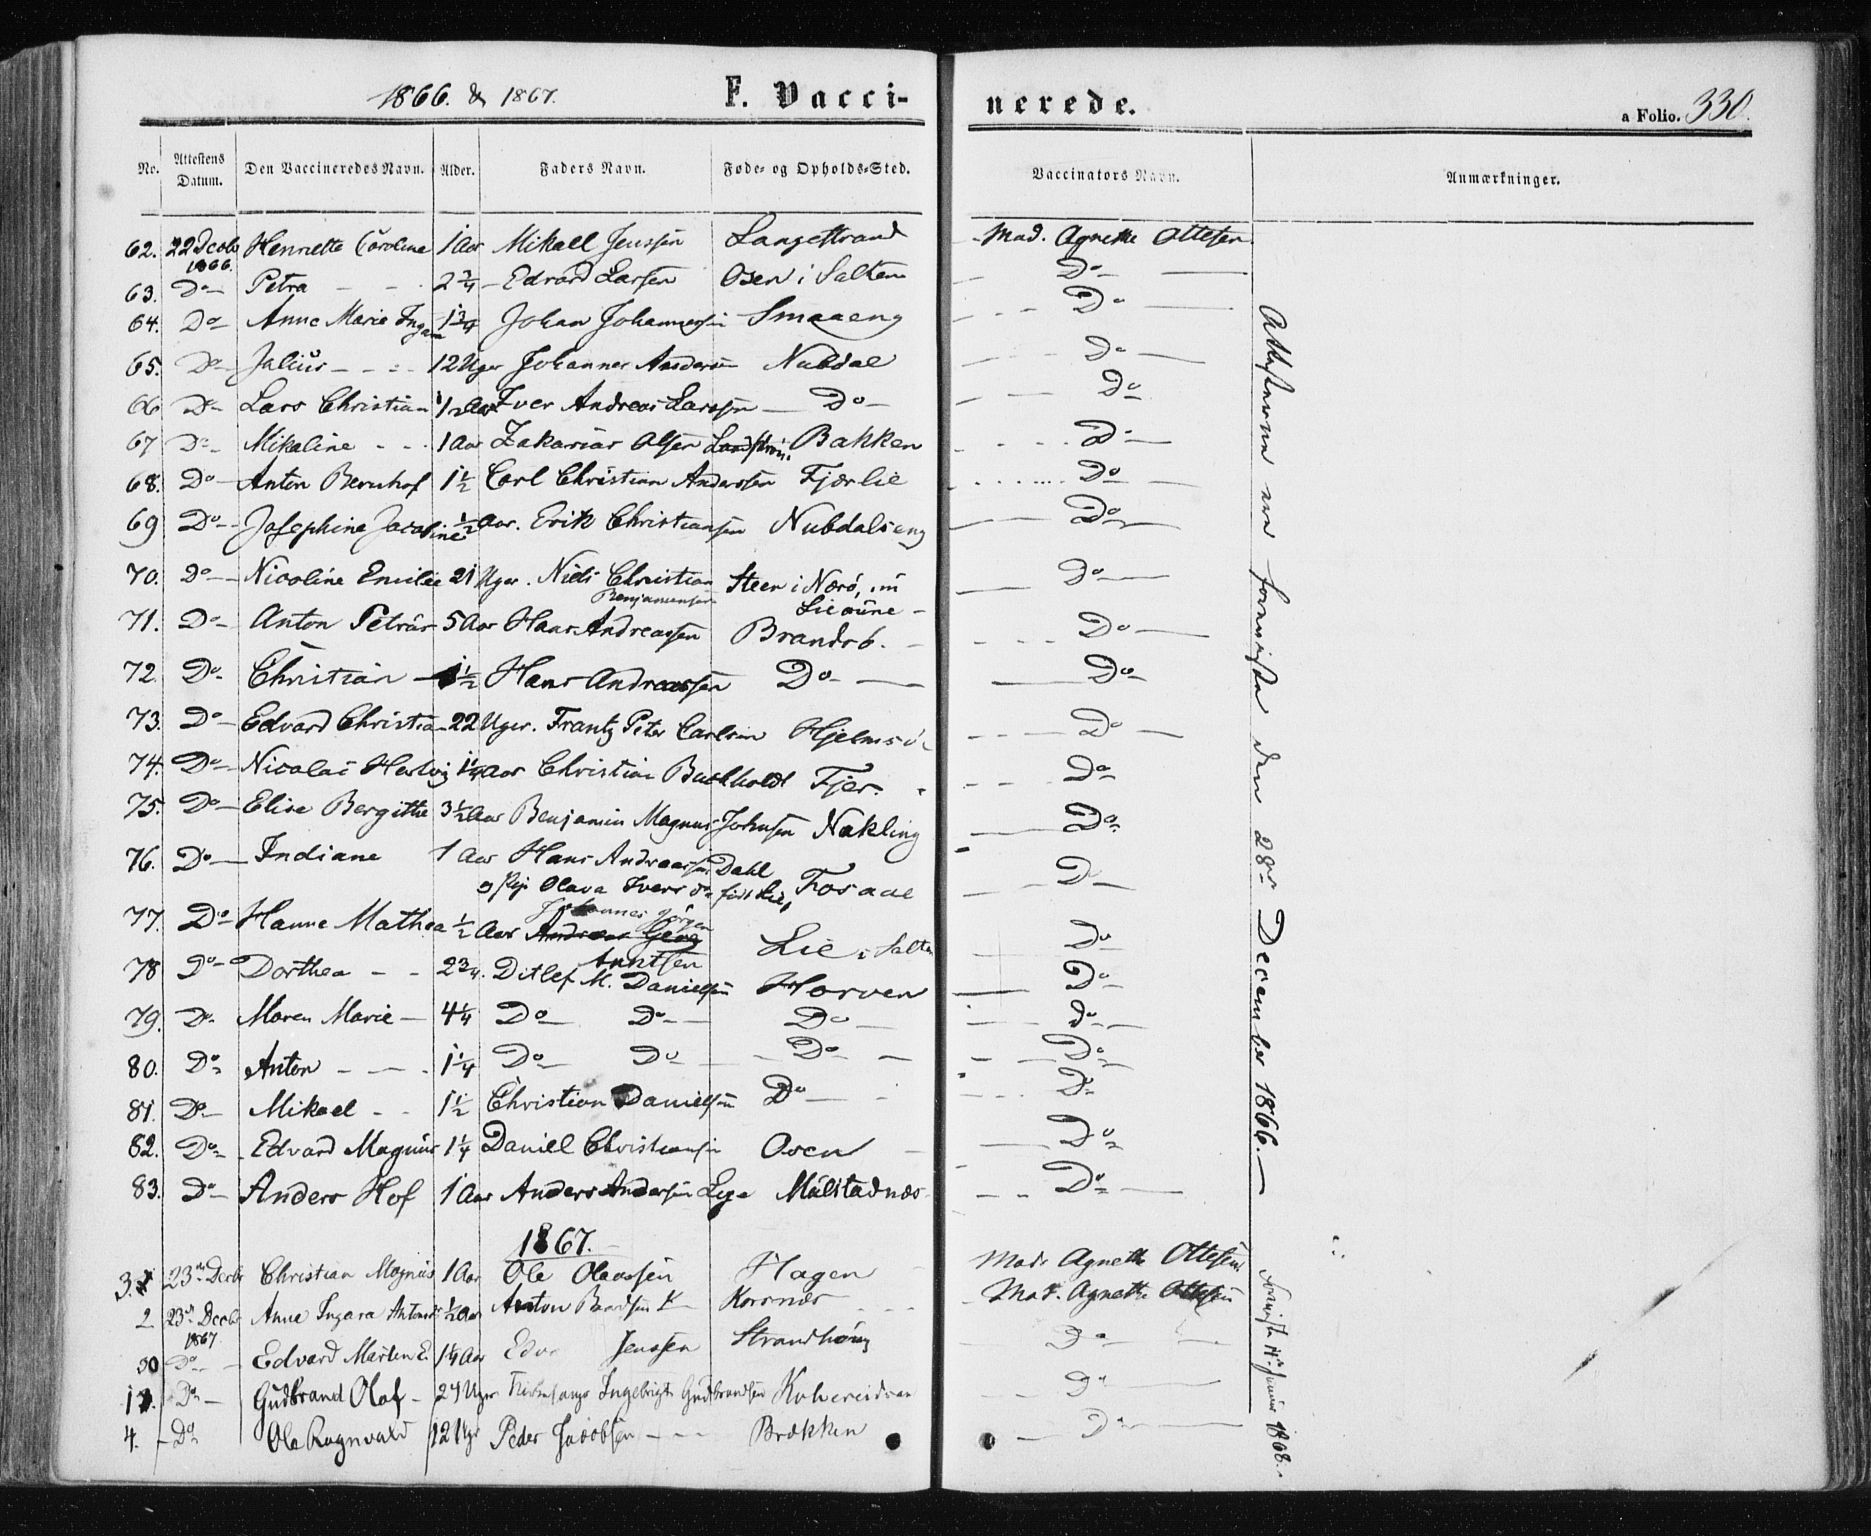 1866. & 1867. F. Vacci- nerede. a Folio. 330.
No. Attestens Datum. Den Vaccineredes Navn. Alder. Faders Navn. Føde- og Opholds-Sted. Vaccinators Navn. Anmærkninger.
62. 22 Dcbr 1866. Henriette Caroline 1 Aar Mikael Jenssen Langestrand Mad. Agnethe Ottesen
63. Do Petra 2 3/4 Edvard Larsen Osen i Salten Do
64. Do Anne Marie 1 3/4 Johan Johannessen Smaaeng Do
65. Do Julius 12 Uger Johannes Andersen Nubdal Do
66 Do Lars Christian 1/2 Aar Iver Andreas Larssen Do Do
67 Do Mikaline 1 Aar Zakarias Olsen Bakken Do
68. Do Anton Bernhof 1 1/2 Carl Christian Anderssen Fjærlie Do
69 Do Josephine Jacobine 1/2 Aar. Erik Christiansen Nubdalseng Do
70. Do Nicoline Emilie 21 Uger. Niels Christian Benjaminsen Steen i Nærö, Do
71. Do Anton Petrus 5 Aar Hans Andreassen Brandsö. Do
72. Do Christian 1 1/2 Hans Andreassen Do Do
73. Do Edvard Christian 22 Uger. Frantz Peter Carlsen Hjelmsö Do
74. Do Nicolai Hertvig 1 1/4 Aar Christian Buchholdt Fjær. Do
75. Do Elise Bergitthe 3 1/2 Aar Benjamin Magnus Johnsen Nakling Do
76. Do Indiane 1 Aar Hans Andreassen Dahl
Pige Olava Iversd. Fosaae Do
77. Do Hanne Mathea 1/2 Aar Johannes Jörgen Arntsen Lie i Salten Do
78 Do Dorthea 2 3/4. Ditlef M. Danielsen Horven Do
79. Do Maren Marie 4 1/4 Do Do Do Do
80. Do Anton 1 1/4 Do Do Do Do
81. Do Mikael 1 1/2 Christian Danielsen Do Do
82. Do Edvard Magnus 1 1/4 Daniel Christiansen Osen Do
83. Do Anders Hof 1 Aar Anders Andersen Lyge Målstadnæs Do
Attesterne ere foreviste den 28de December 1866.
1867.
3. 23de Dcbr Christian Magnus 1 Aar Ole Olaussen Hagen Mad. Agnethe Ottesen
2 23de Decbr 1867. Anne Ingara 1/2 Aar Anton Baardsen Korsnæs Mad. Agnethe Ottesen
Do Edvard Martin E. 1 1/4 Aar Jenssen Strandhöug Do
Do Gudbrand Olaf 24 Uger Ingebrigt Gudbrandsen Kolvereid Do
4. Do Ole Ragnvald 12 Uger Peder Jacobsen Brækken Do
Foreviste Januar 1868.